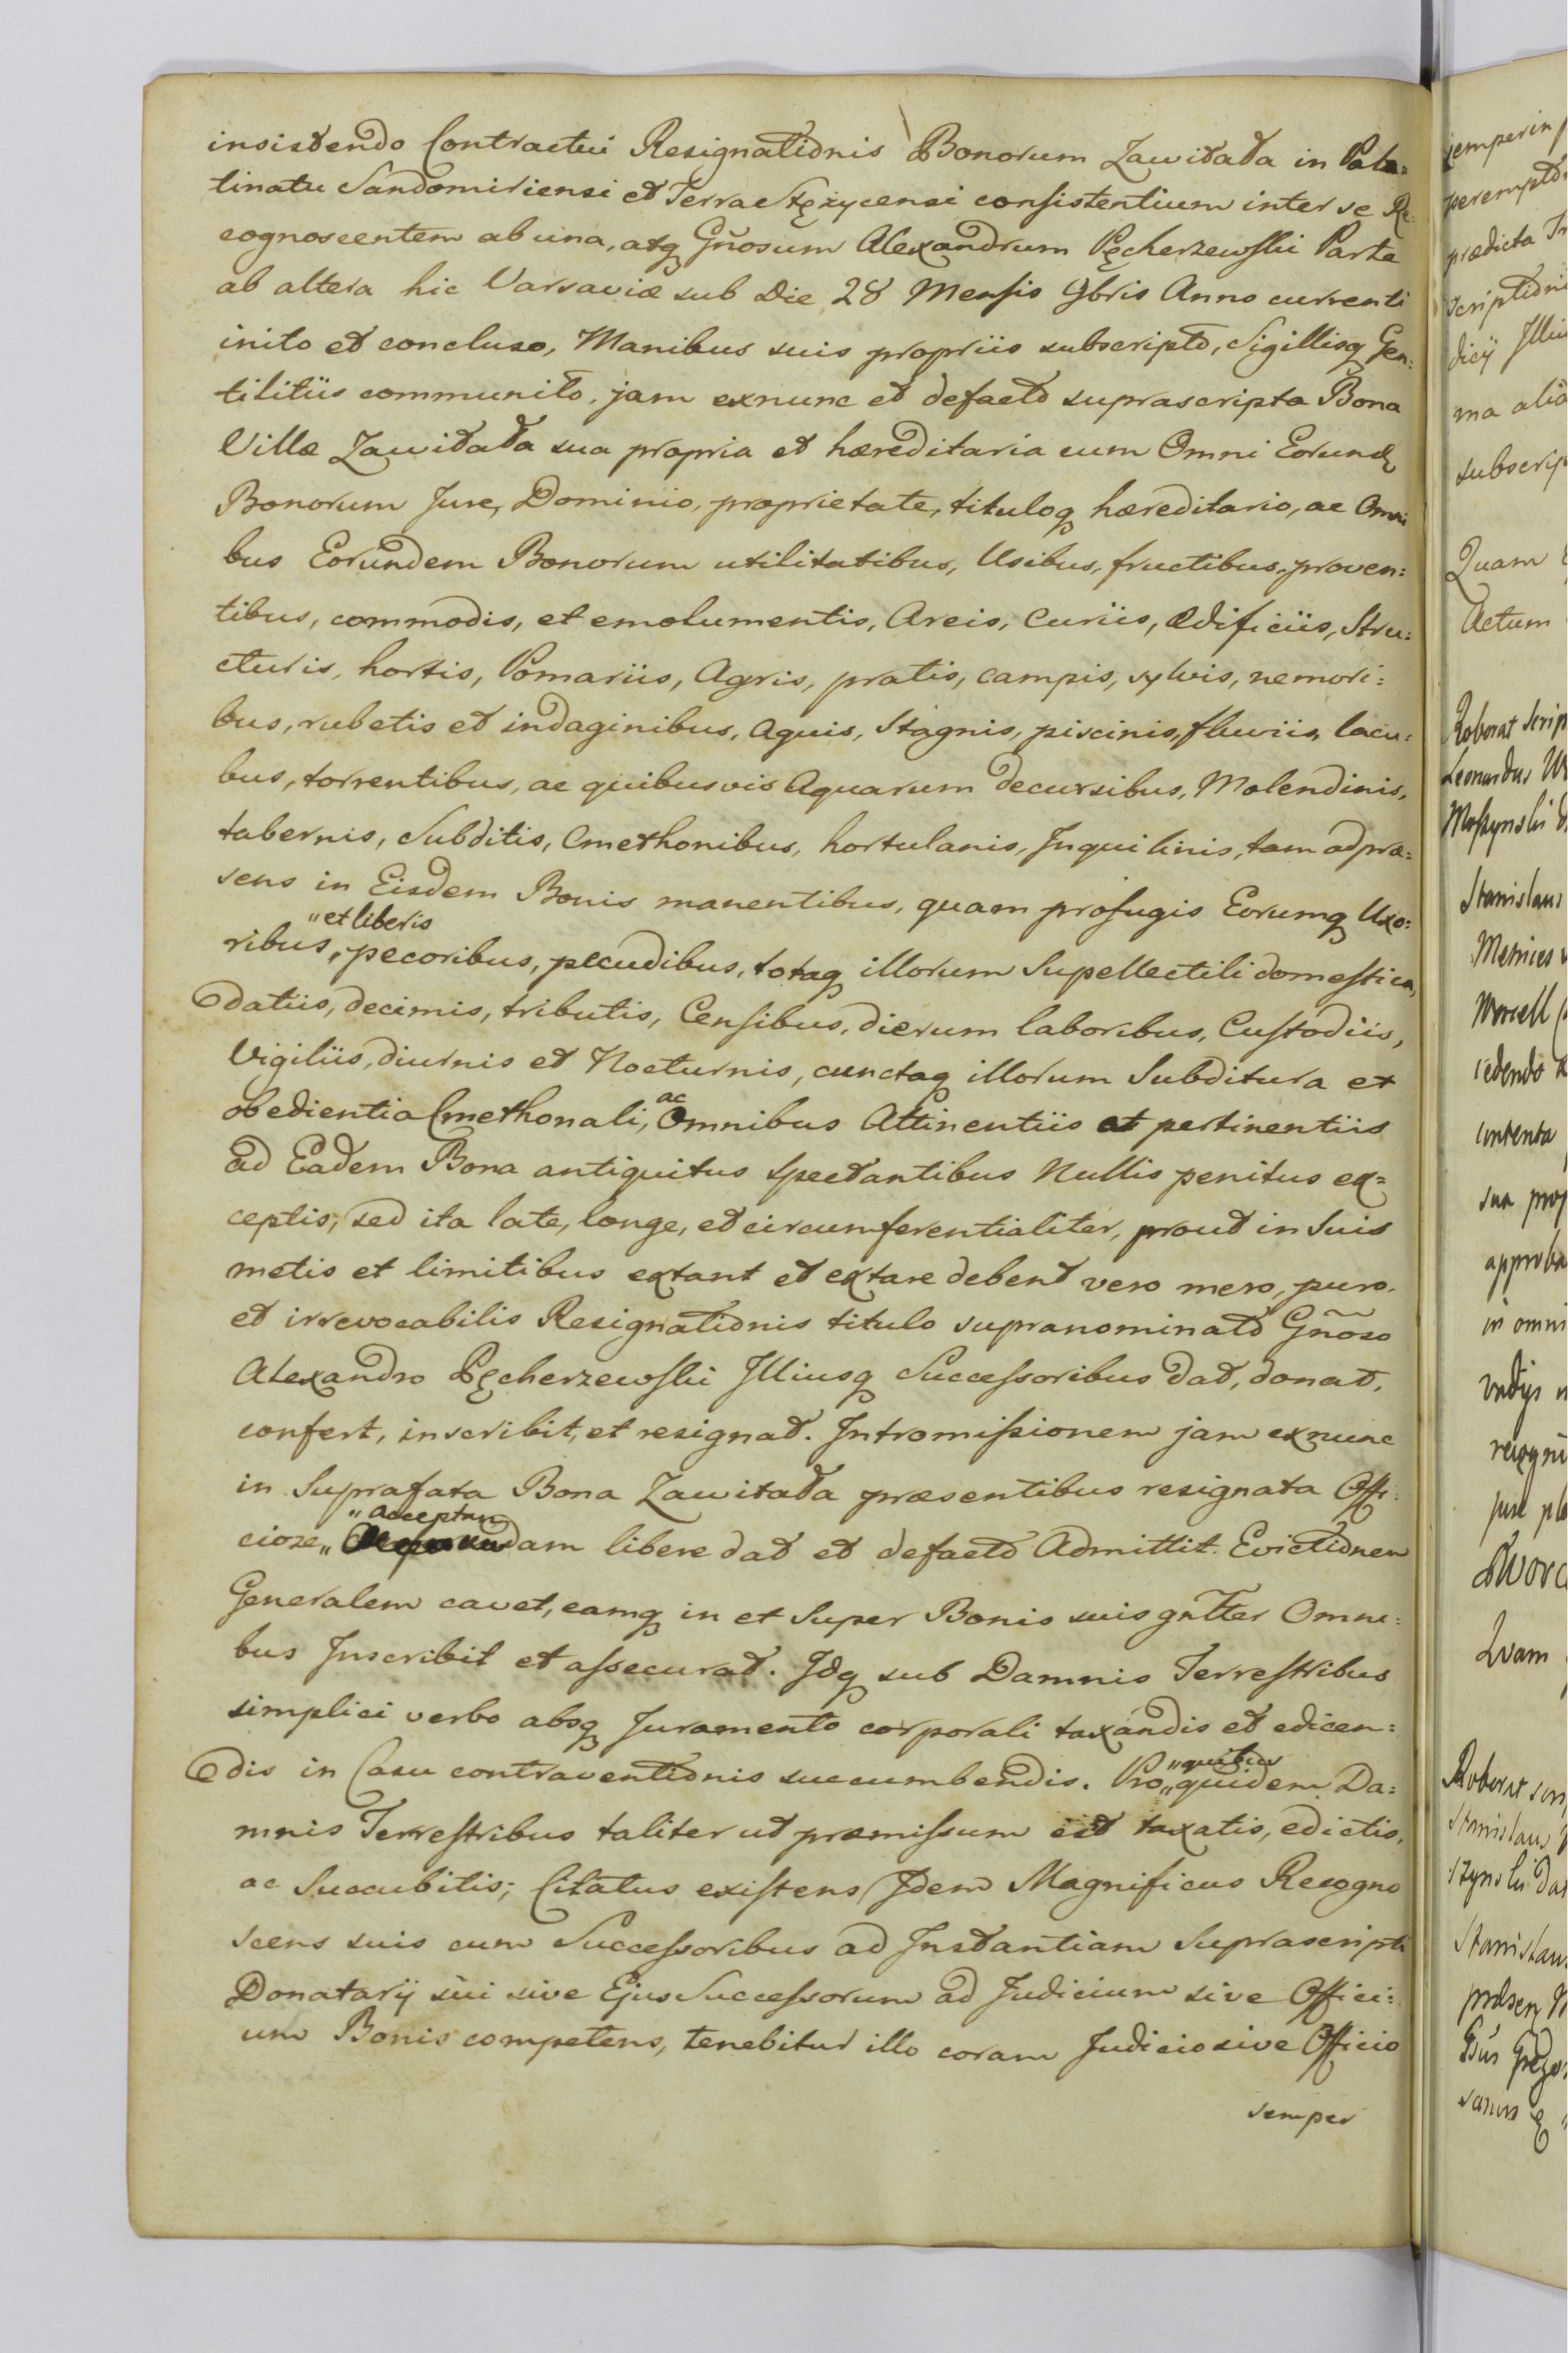 insistendo Contractui Resignationis Bonorum Zawitała in Pala=
tinatu Sandomiriensi et Terra Stężycensi consistentium inter se Re=
cognoscentem ab una, atq Gñosum Alexandrum Pęcherzewski Parte
ab altera hic Varsaviæ sub Die 28 Mensis 9bris Anno currenti
inito et concluso, Manibus suis propriis subscripto, Sigillisq Gen=
tilitiis communito, jam exnunc et defacto suprascripta Bona
Villæ Zawitała sua propria et hæreditaria cum Omni Eorund
Bonorum Jure, Dominio, proprietate, tituloq hæreditario, ac Omni
bus Eorundem Bonorum utilitatibus, Usibus, fructibus, proven=
tibus, commodis, et emolumentis, Areis, Curiis, Ædificiis, Stru=
cturis, hortis, Pomariis, Agris, pratis, campis, sylvis, nemori=
bus, rubetis et indaginibus, Aquis, Stagnis, piscinis, fluviis, lacu=
bus, torrentibus, ac quibusvis Aquarum decursibus, Molendinis,
tabernis, Subditis, Cmethonibus, hortulanis, Inquilinis, tam adpræ=
sens in Eisdem Bonis manentibus, quam profugis Eorumq Uxo=
"et liberis
ribus, pecoribus, pecudibus, totaq illorum Supellectili domestica,
datiis, decimis, tributis, Censibus, dierum laboribus, Custodiis,
Vigiliis, diurnis et Nocturnis, cunctaq illorum Subditura et
obedientia Cmethonali, ac Omnibus Attinentiis et pertinentiis
ad Eadem Bona antiquitus spectantibus Nullis penitus ex=
ceptis, sed ita late, longe, et circumferentialiter, prout in Suis
metis et limitibus extant et extare debent vero mero, puro,
et irrevocabilis Resignationis titulo supranominato Gñoso
Alexandro Pęcherzewski Illiusq Successoribus dat, donat,
confert, inscribit, et resignat. Intromissionem jam exnunc
in Suprafata Bona Zawitała præsentibus resignata Offi=
"acceptan
ciose "dam libere dat et defacto Admittit. Evictionem
Generalem cavet, eamq in et Super Bonis suis gñlter Omni=
bus Inscribit et assecurat. Idq sub Damnis Terrestribus
simplici verbo absq Juramento corporali taxandis et edicen=
dis in Casu contraventionis succumbendis. Pro "quibus
"quidem Da=
mnis Terrestribus taliter ut præmissum est taxatis, edictis,
ac Succubitis; Citatus existens Idem Magnificus Recogno
scens suis cum Successoribus ad Instantiam Suprascripti
Donatarij sui sive Ejus Successorum ad Judicium sive Offici=
um Bonis competens, tenebitur illo coram Judicio sive Officio
semper
semper in
perempto
prædicta
scriptioni
dicij
ma alia
subscrip
Quam
Actum
Roborat Scrip
Leonardus
Moszynski
Stanislaus
Metrices
Worcell
cedendo
contenta
sua prop
approba
in omni
vadijs
recogni
jure
Quam
Roborat
Stanislaus
szynski dat
Stanislaus
præsen